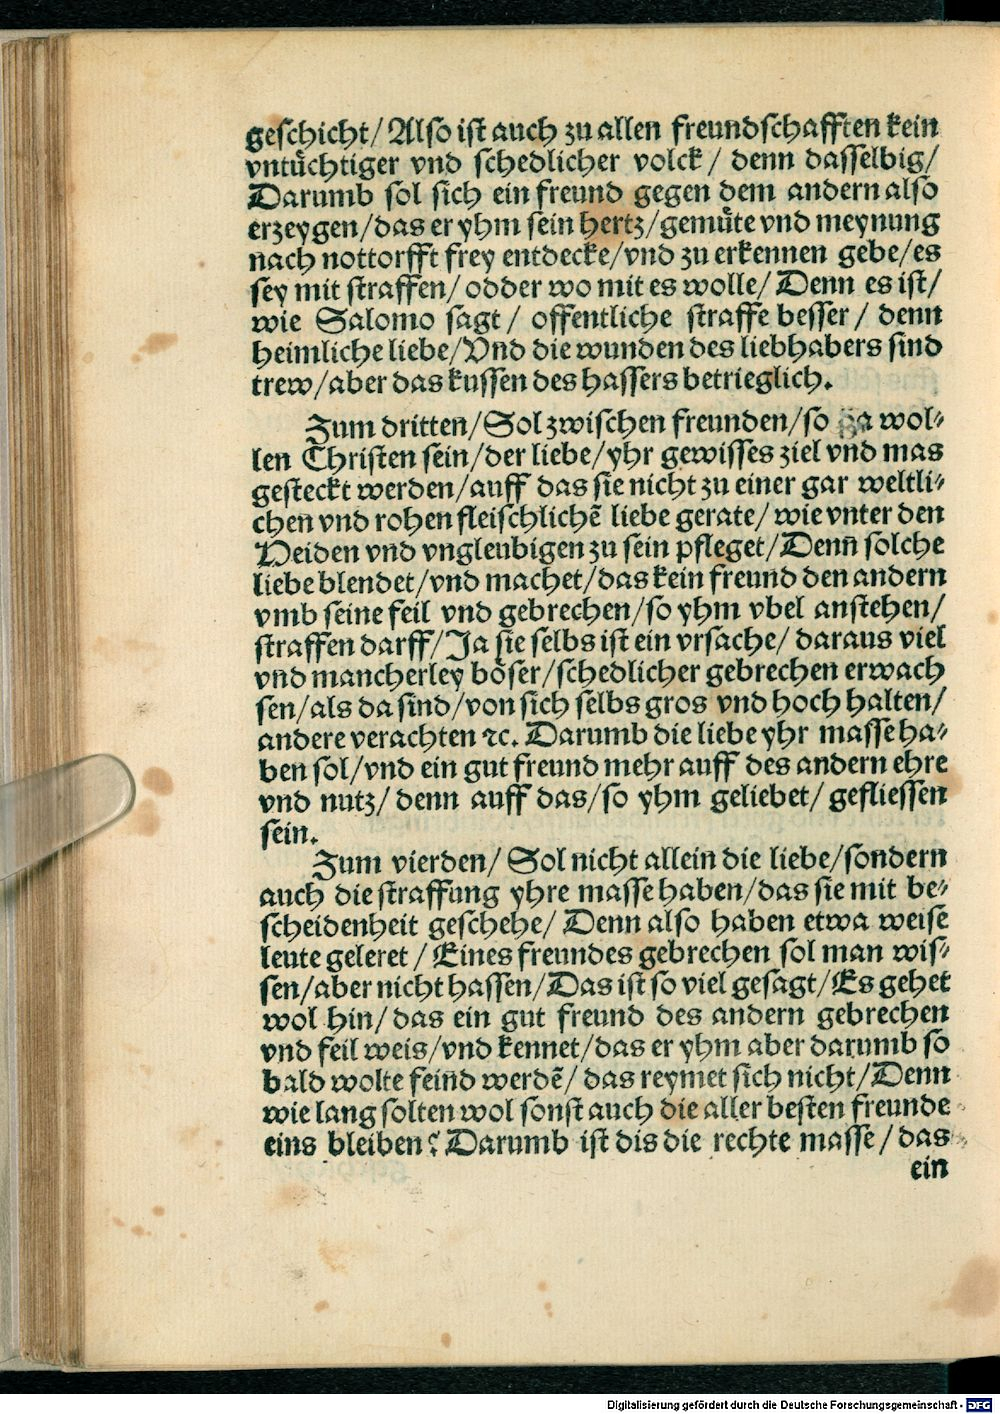 geschicht/ Also ist auch zu allen freundschafften kein
vntüchtiger vnd schedlicher volck/ denn dasselbig/
Darumb sol sich ein freund gegen dem andern also
erzeygen/das er yhm sein hertz/gemüte vnd meynung
nach nottorfft frey entdecke/vnd zu erkennen gebe/es
sey mit straffen/ odder wo mit es wolle/ Denn es ist/
wie Salomo sagt/ offentliche straffe besser/ denn
heimliche liebe/Vnd die wunden des liebhabers sind
trew/aber das kussen des hassers betrieglich.
Zum dritten/Sol zwischen freunden/so wol⸗
len Christen sein/der liebe/yhr gewisses ziel vnd mas
gesteckt werden/auff das sie nicht zu einer gar weltli⸗
chen vnd rohen fleischlichẽ liebe gerate/ wie vnter den
Heiden vnd vngleubigen zu sein pfleget/Denn̄ solche
liebe blendet/vnd machet/das kein freund den andern
vmb seine feil vnd gebrechen/so yhm vbel anstehen/
straffen darff/Ja sie selbs ist ein vrsache/ daraus viel
vnd mancherley böser/schedlicher gebrechen erwach
sen/als da sind/von sich selbs gros vnd hoch halten/
andere verachten ⁊c. Darumb die liebe yhr masse ha⸗
ben sol/vnd ein gut freund mehr auff des andern ehre
vnd nutz/ denn auff das/so yhm geliebet/ gefliessen
sein.
Zum vierden/ Sol nicht allein die liebe/sondern
auch die straffung yhre masse haben/das sie mit be⸗
scheidenheit geschehe/ Denn also haben etwa weise
leute geleret/ Eines freundes gebrechen sol man wis⸗
sen/aber nicht hassen/Das ist so viel gesagt/Es gehet
wol hin/ das ein gut freund des andern gebrechen
vnd feil weis/vnd kennet/das er yhm aber darumb so
bald wolte feind werdẽ/ das reymet sich nicht/Denn
wie lang solten wol sonst auch die aller besten freunde
eins bleiben? Darumb ist dis die rechte masse/ das
ein
Digitalisierung gefördert durch die Deutsche Forschungsgemeinschaft - DFG